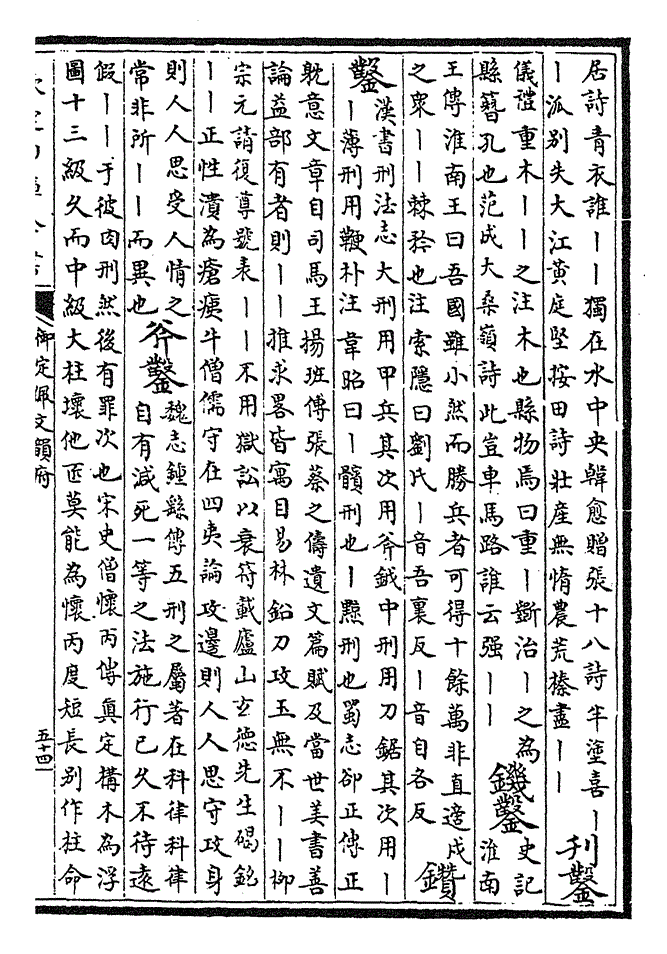 居詩青衣誰丨丨獨在水中央韓愈贈張十八詩半塗喜丨
丨派別失大江黃庭堅按田詩壯産無惰農荒榛盡丨丨
刋鑿
儀禮重木丨丨之注木也縣物焉曰重丨斷治丨之為
縣簪孔也范成大桑嶺詩此豈車馬路誰云强丨丨
鐖鑿
史記
淮南
王傳淮南王曰吾國雖小然而勝兵者可得十餘萬非直適戍
之衆丨丨棘矜也注索隱曰劉氏丨音吾裏反丨音自各反
鑽
鑿
漢書刑法志大刑用甲兵其次用斧鉞中刑用刀鋸其次用丨
丨薄刑用鞭朴注韋昭曰丨髕刑也丨黥刑也蜀志卻正傳正
躭意文章自司馬王揚班傅張蔡之儔遺文篇賦及當世美書善
論益部有者則丨丨推求畧皆寓目易林鉛刀攻玉無不丨丨柳
宗元請復尊號表丨丨不用獄訟以衰符載廬山玄德先生碣銘
丨丨正性潰為瘡痍牛僧儒守在四夷論攻邊則人人思守攻身
則人人思受人情之
常非所丨丨而異也
斧鑿
魏志鍾繇傳五刑之屬著在科律科律
自有減死一等之法施行已久不待遠
假丨丨于彼肉刑然後有罪次也宋史僧懷丙傳真定構木為浮
圖十三級久而中級大柱壞他匠莫能為懷丙度短長别作柱命
御定佩文韻府
五十四